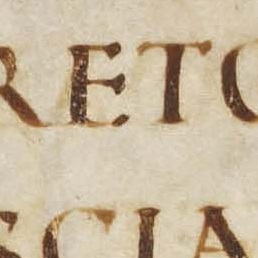 RETO
SCIA